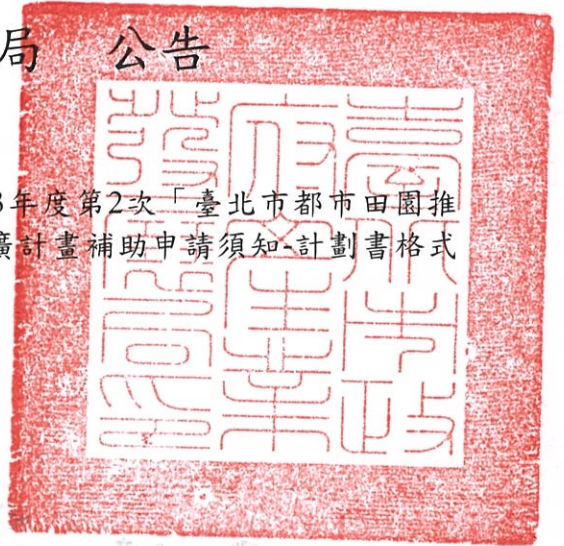 局 公告
3年度第2次「臺北市都市田園推
廣計畫補助申請須知-計劃書格式
臺北市政
府產業
發展局印